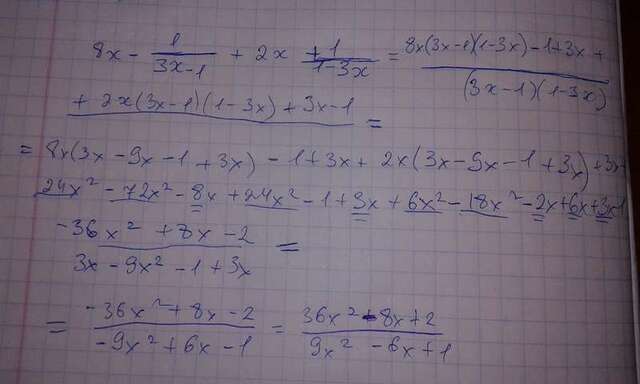 8x - 1/(3x-1) + 2x + 1/(1-3x) = (8x(3x-1)(1-3x) - 1 + 3x +
+ 2x(3x-1)(1-3x) + 3x - 1)/((3x-1)(1-3x)) =
= 8x(3x - 9x - 1 + 3x) - 1 + 3x + 2x(3x - 9x - 1 + 3x) + 3x-
24x² - 72x² - 8x + 24x² - 1 + 3x + 6x² - 18x² - 2x + 6x + 3x-1
(-36x² + 8x - 2)/(3x - 9x² - 1 + 3x) =
= (-36x² + 8x - 2)/(-9x² + 6x - 1) = (36x² - 8x + 2)/(9x² - 6x + 1)